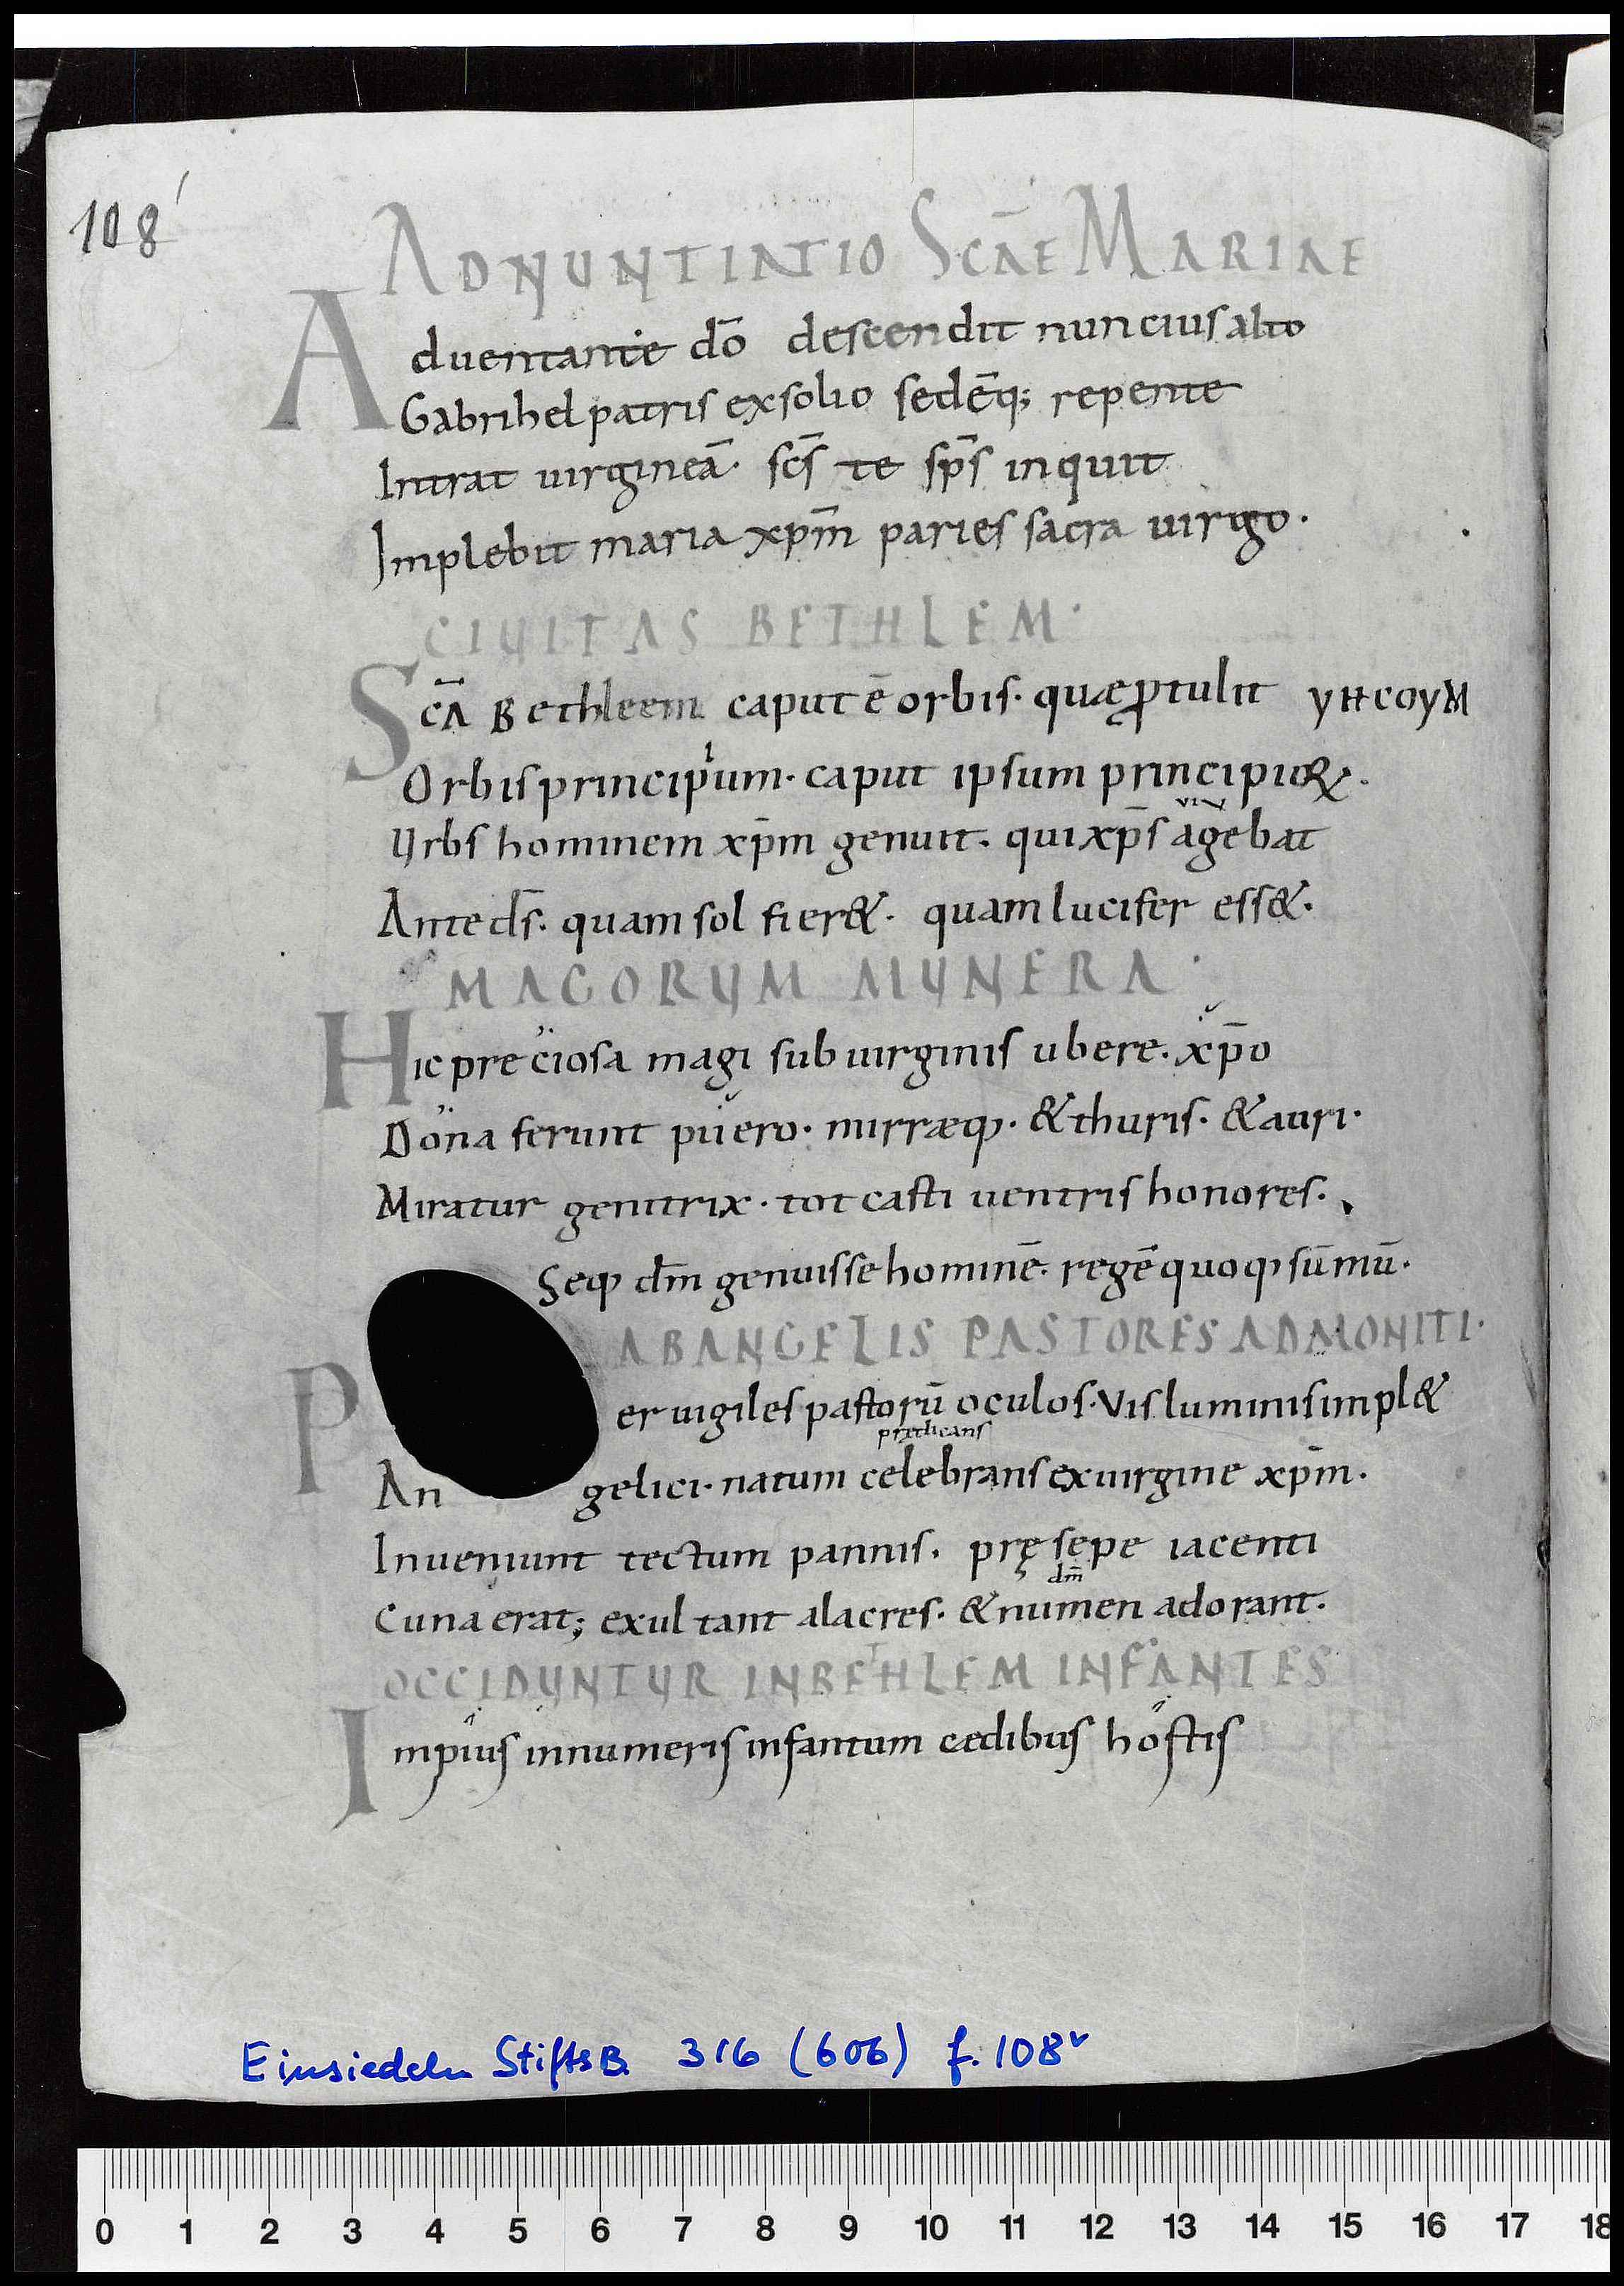 108'
ADNUNTIATIO SCĀE MARIAE
Aduentante dō descendit nuncius alto
Gabrihel patris ex solio sedēq; repente
Intrat uirgineā. sc̄s te sp̄s inquit
Implebit maria xp̄m paries sacra uirigo.
CIUITAS BETHLEM.
Sc̄a Bethleem caput ē orbis. quæ ꝓtulit yHCOyM
Orbis principium. caput ipsum principioꝝ.
Urbs hominem xp̄m genuit. qui xp̄s agebat
Ante d̄s. quam sol fier&. quam lucifer ess&.
MAGORUM MUNERA.
Hic preciosa magi sub uirginis ubere. xp̄o
Dona ferunt puero. mirræq;. & thuris. & auri.
Miratur genitrix. tot casti uentris honores.
Seq; dm̄ genuisse hominē. regē quoq; sūmū.
AB ANGELIS PASTORES ADMONITI.
Peruigiles pastorū oculos. Vis luminis impl&
predicans
Angelici. natum celebrans ex uirgine xp̄m.
Inueniunt tectum pannis. pręsepe iacenti
dm̄
Cuna erat; exultant alacres. & numen adorant.
OCCIDUNTUR IN BETHLEM INFANTES
Impius innumeris infantum cædibus hostis
Einsiedeln StiftsB. 316 (606) f. 108v
0 1 2 3 4 5 6 7 8 9 10 11 12 13 14 15 16 17 18